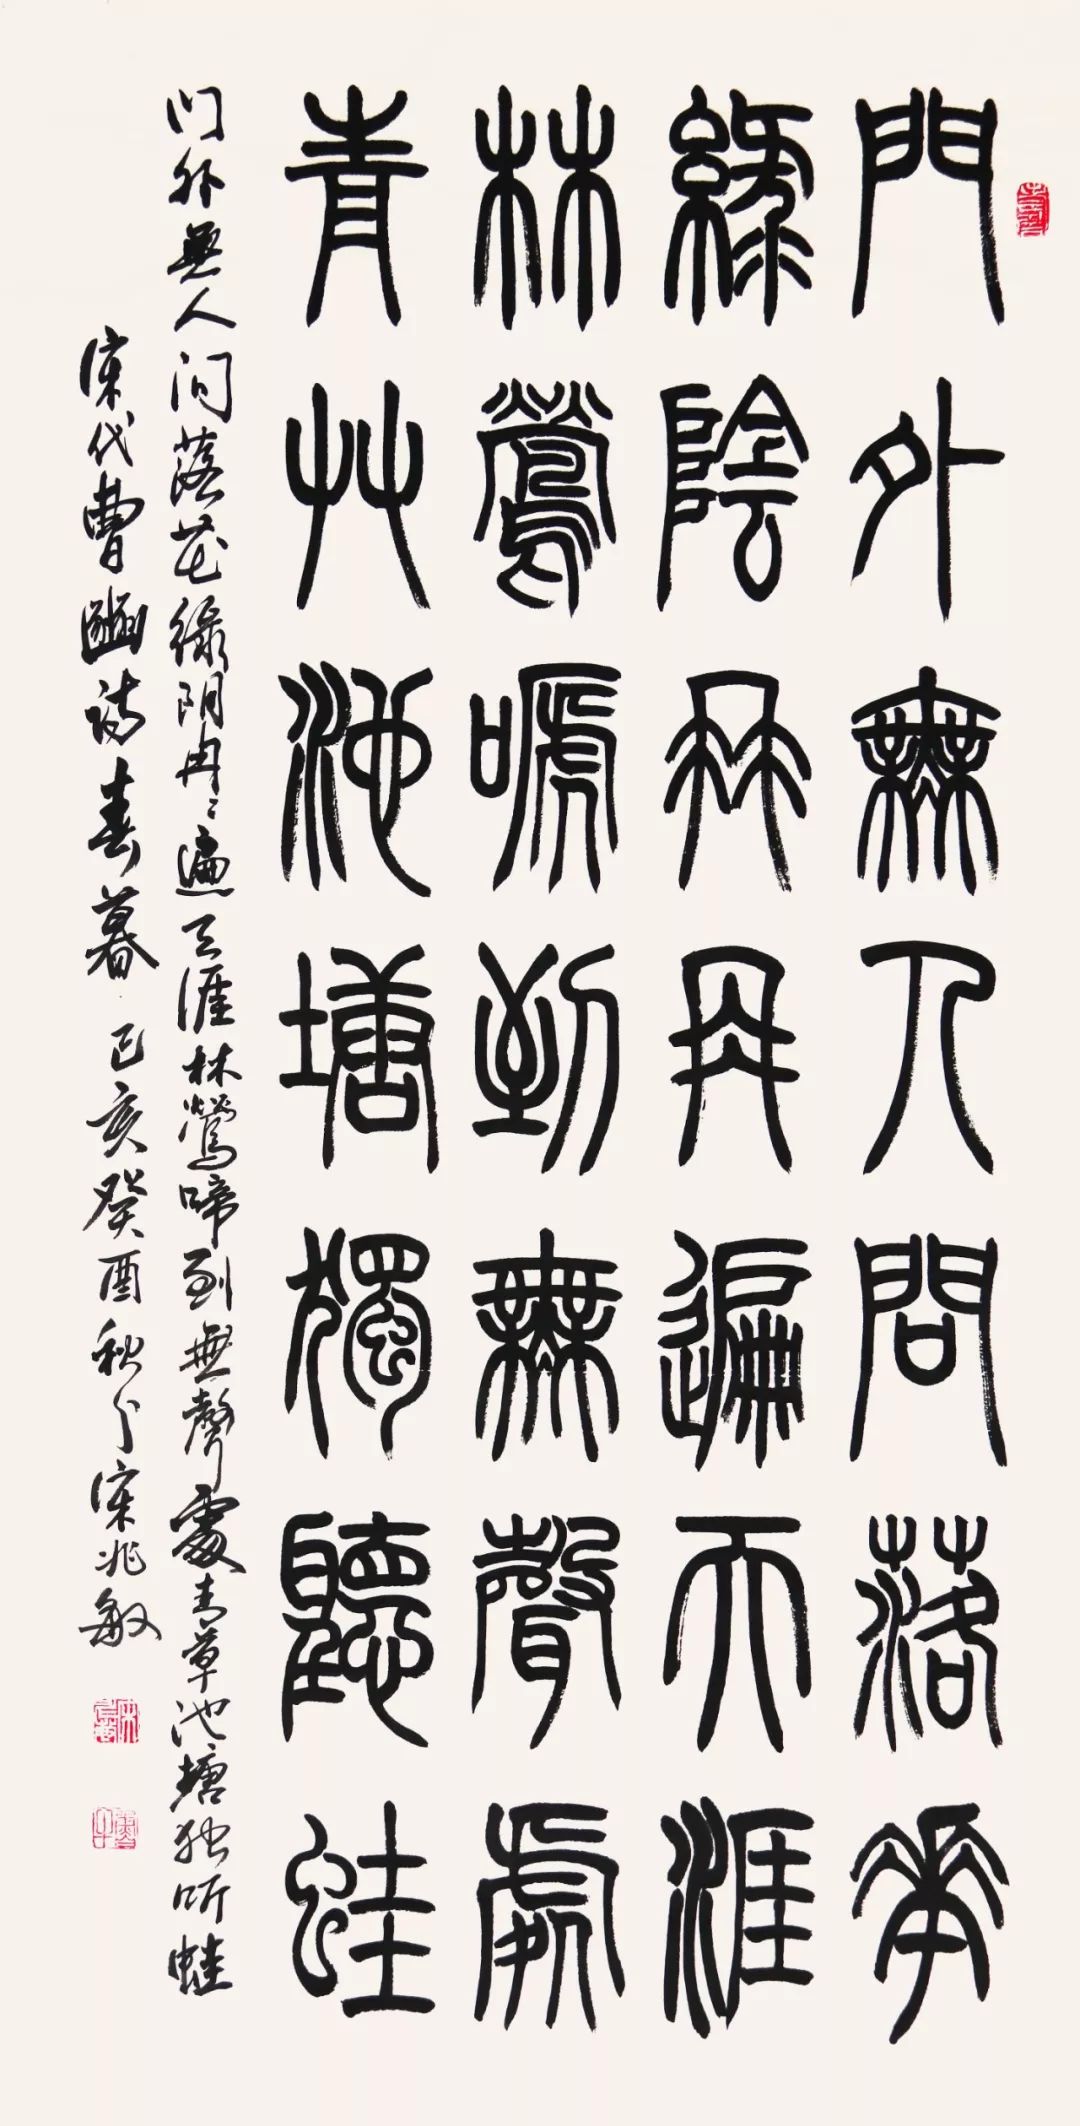 門外無人問落華
綠陰冉冉遍天涯
林鶯嗁到無聲處
青艸池塘獨聽蛙
门外無人问落花绿阴冉〻遍天涯林鶯啼到無聲處青草池塘独听蛙
宋代曹豳诗春暮 己亥癸酉秋分宋兆敏